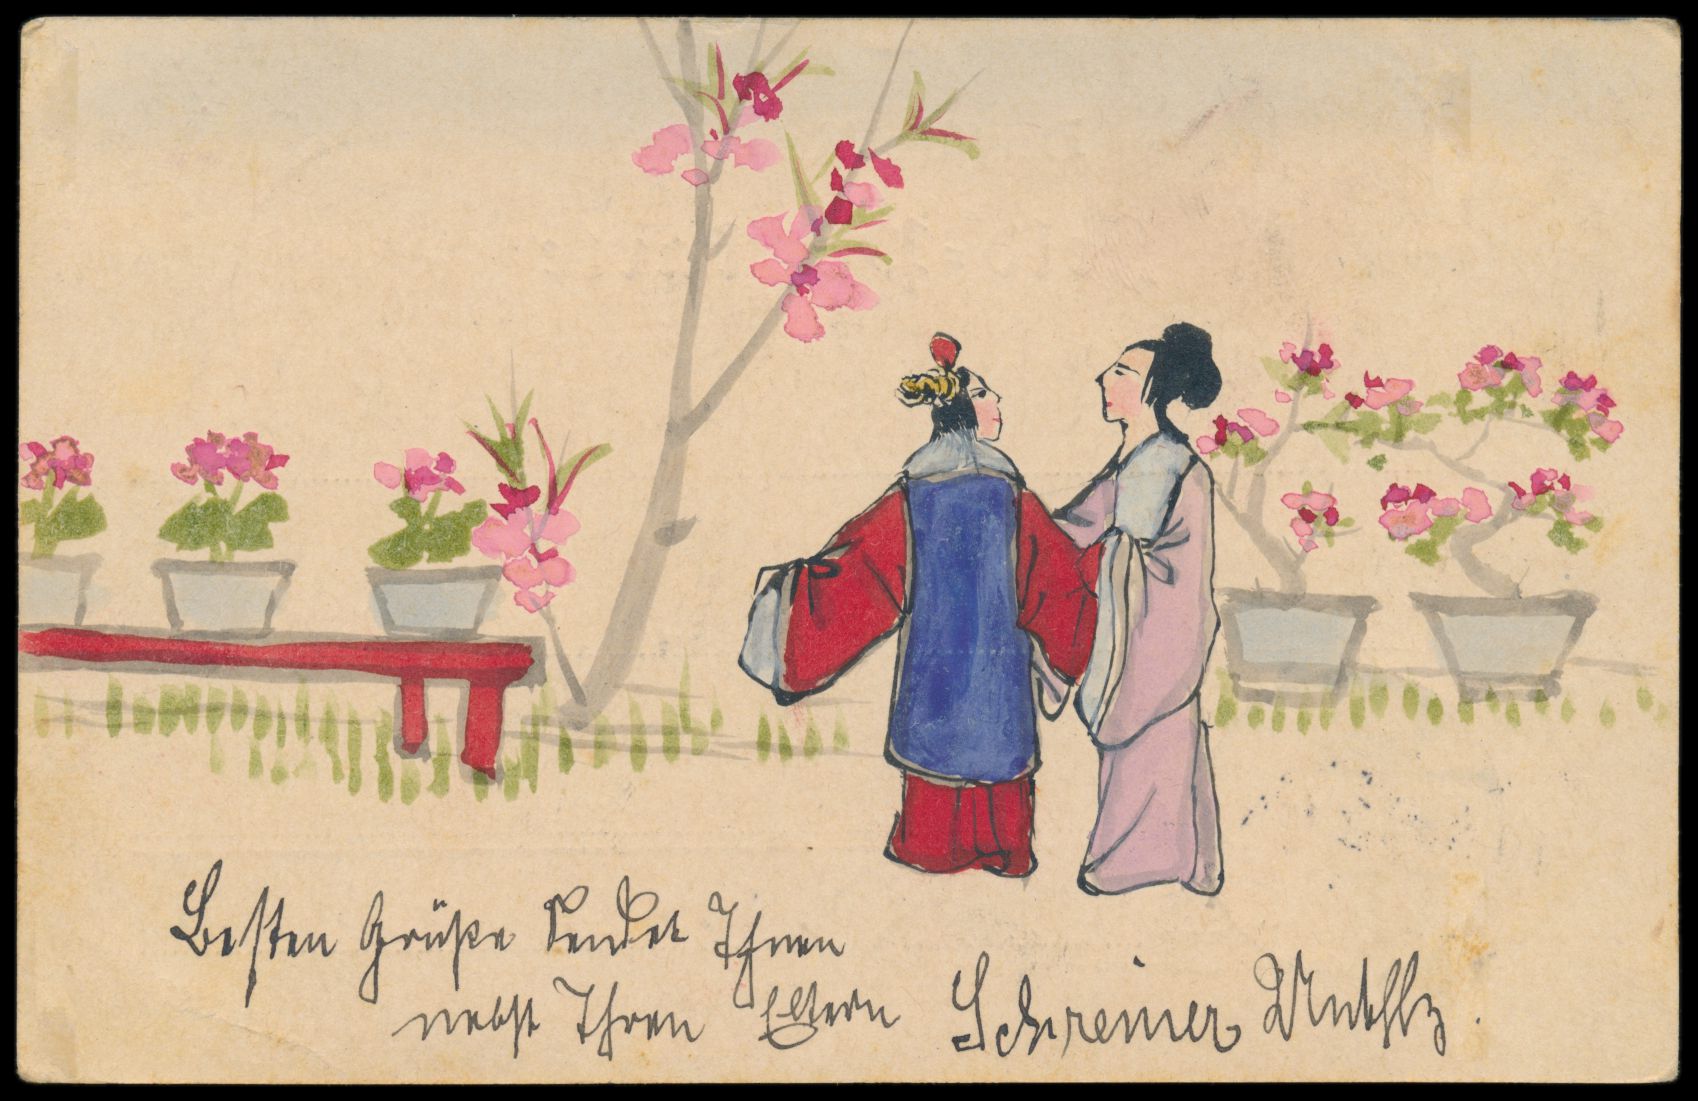 Besten Grüße sendet Ihnen
nebst Ihren Eltern Schreiner